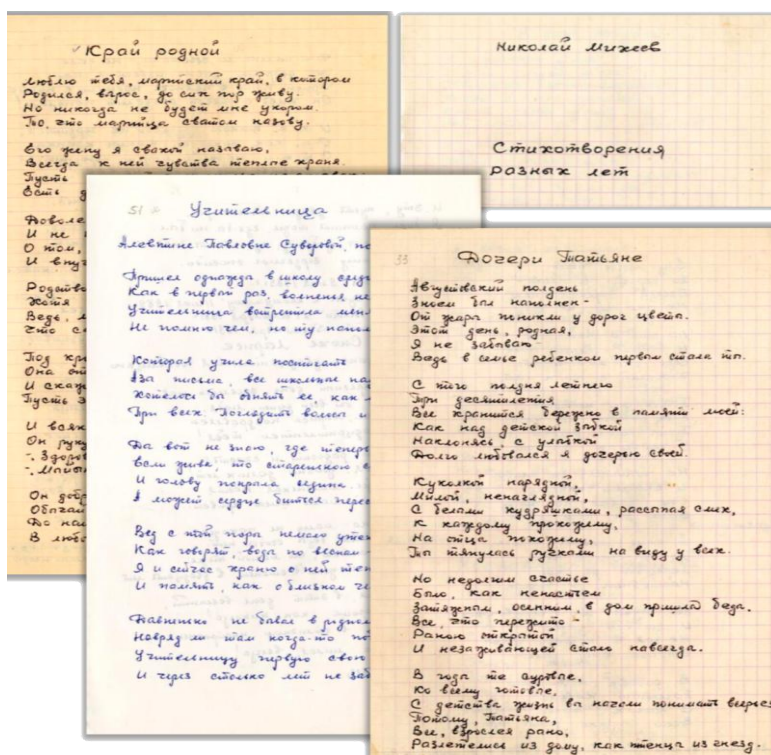 Край родной
Люблю тебя, марийский край, в котором
Родился, вырос, до сих пор живу.
Но никогда не будет мне укором
То, что марийца сватом назову.
Его жену я свахой называю,
Всегда к ней чувства теплые храня.
Пусть
Есть
И не
О том,
И внуч
Родство
Хотя
Ведь,
Что с
Под кр
Она от
И скаж
Пусть з
И всяк
Он руку
- Здоров
Он добр
Обычай
До
В любо
Николай Михеев
Стихотворения
разных лет
51
Учительница
Алевтине Павловне Суворовой, по
Пришел однажды в школу средь
Как в первый раз, волненья не
Учительница встретила меня
Не помню чем, но ту напом
Которая учила постигать
Аза письма, все школьные на
Хотелось бы обнять ее, как
При всех. Погладить волосы и
Да вот не знаю, где теперь
Если жива, то старушкою с
И голову покрыла седина.
А может сердце биться перес
Вед с той поры немало утек
Как говорят, вода по весном
Я и сейчас храню о ней теп
И память, как о близком че
Давненько не бывал в родном
Навряд ли там когда-то по
Учительницу первую свою
И через столько лет не заб
33
Дочери Татьяне
Августовский полдень
Зноем был наполнен -
От жары поникли у дорог цветы.
Этот день, родная,
Я не забываю -
Ведь в семье ребенком первым стала ты.
С того полдня летнего
Три десятилетия
Все хранится бережно в памяти моей:
Как над детской зыбкой
Наклонясь, с улыбкой
Долго любовался я дочерью своей.
Куколкой нарядной,
Милой, ненаглядной,
С белыми кудряшками, рассыпая смех,
К каждому прохожему,
На отца похожему,
Ты тянулась ручками на виду у всех.
Но недолгим счастье
Было, как ненастьем
Затяжным, осенним, в дом пришла беда.
Все, что пережито -
Раною открытой
И незаживающей стало навсегда.
В года те суровые,
Ко всему готовые,
С детства жизнь вы начали понимать всерьез
Потому, Татьяна,
Вы, взрослея рано,
Разлетелись из дому, как птенцы из гнезд.